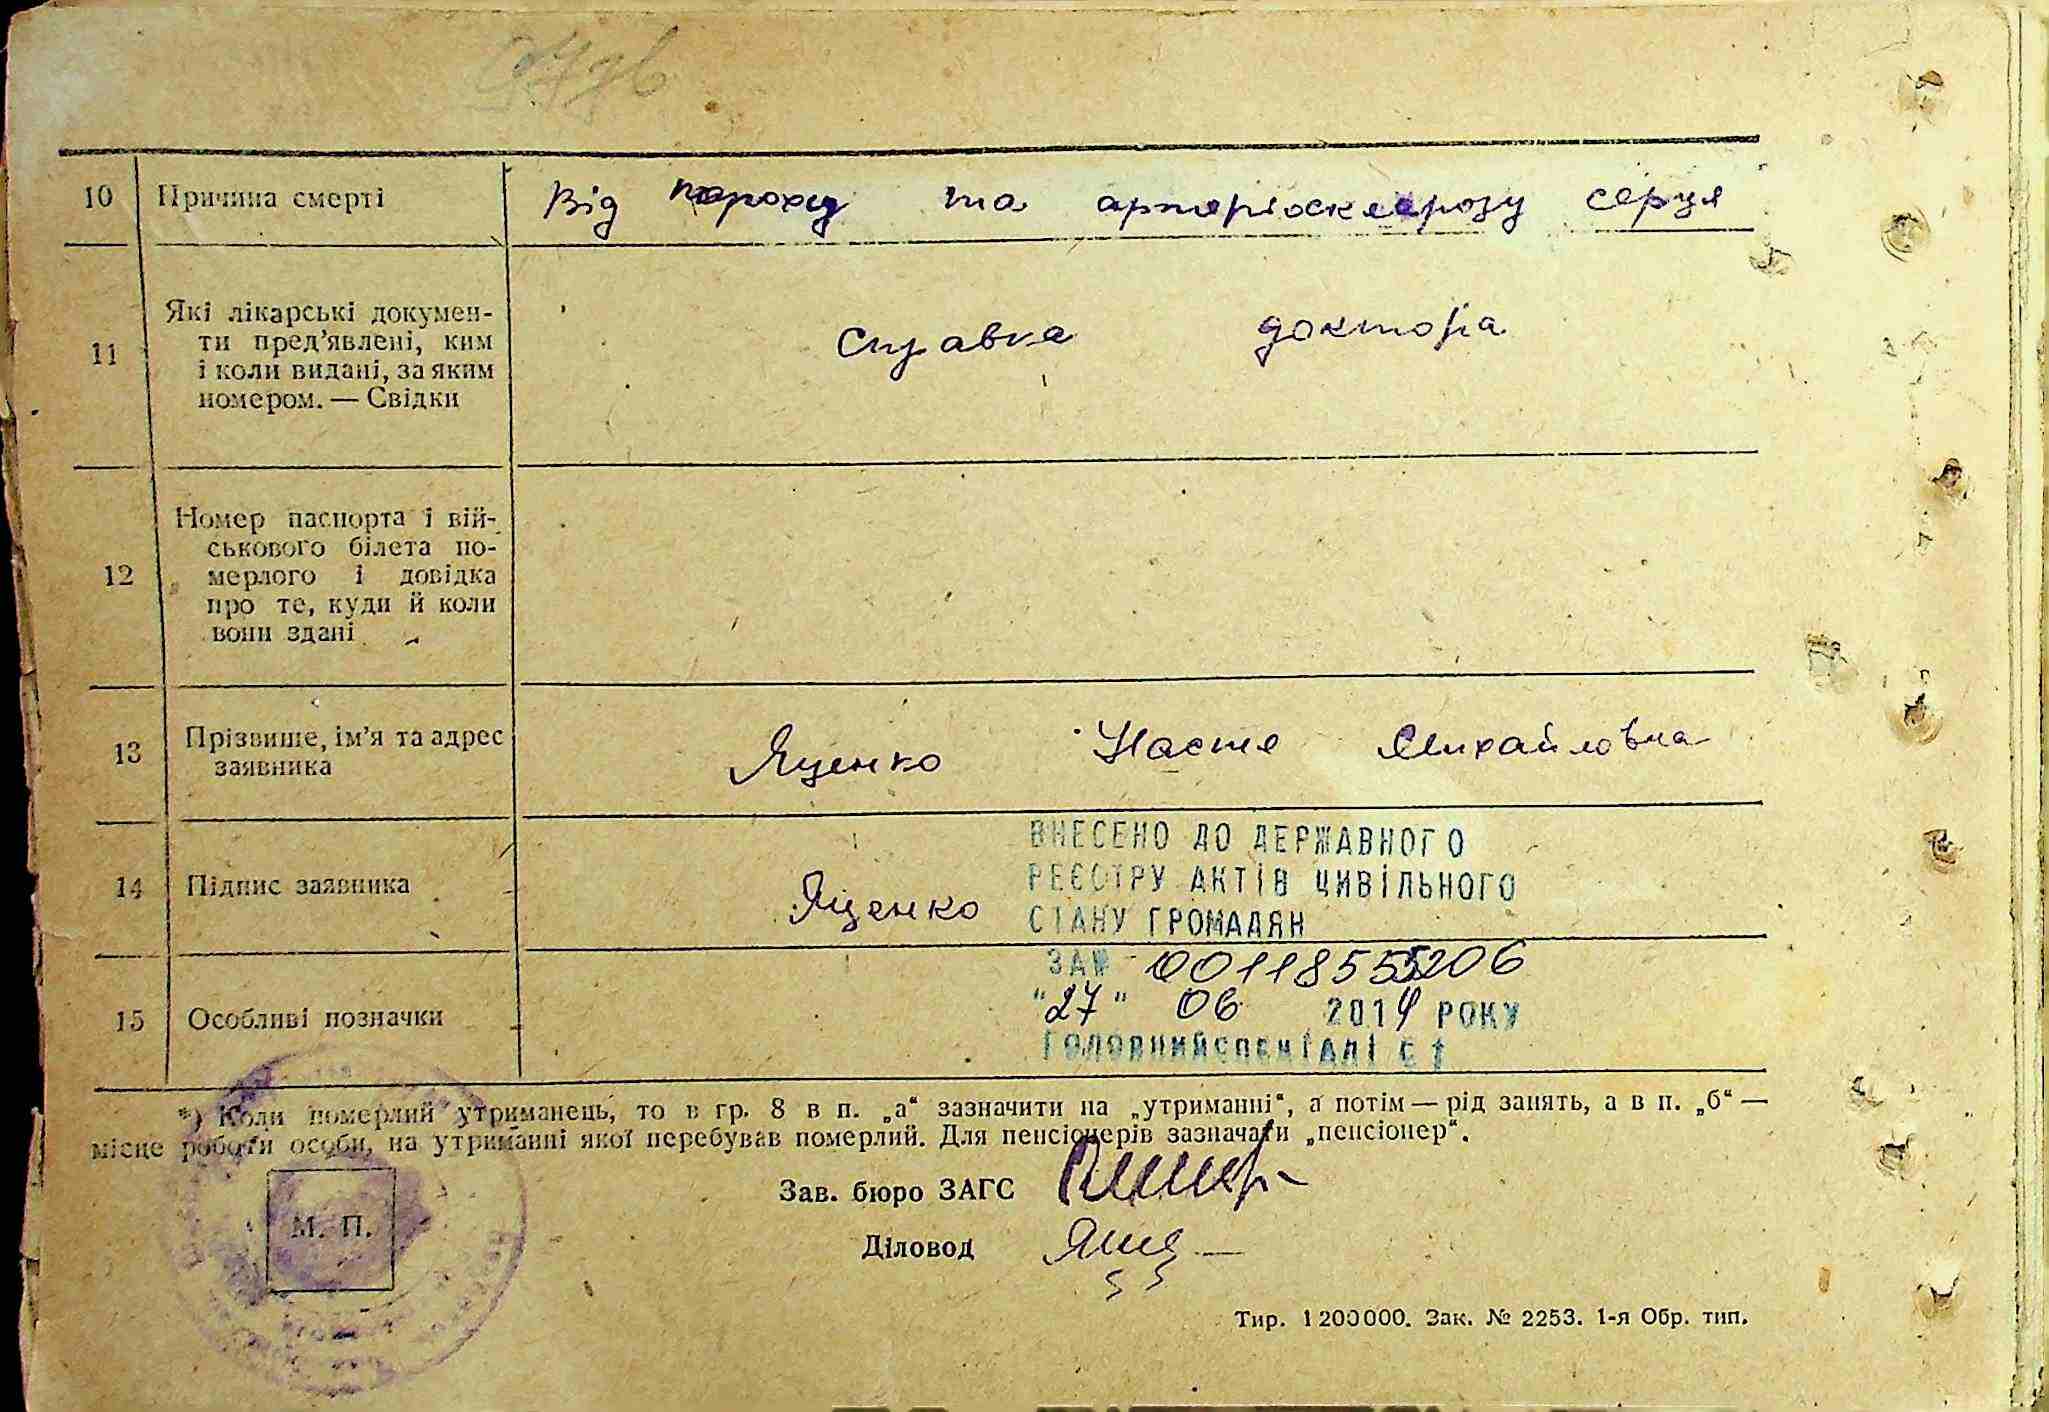 10 Причина смерті Від та артеріосклерозу серця
11 Які лікарські докумен-
ти пред’явлені, ким
і коли видані, за яким
номером. — Свідки
Справка доктора
12 Номер паспорта і вій-
ськового білета по-
мерлого і довідка
про те, куди й коли
вони здані
13 Прізвище, ім’я та адрес
заявника
Яценко Настя Михайловна
14 Підпис заявника Яценко
ВНЕСЕНО ДО ДЕРЖАВНОГО
РЕЄСТРУ АКТІВ ЦИВІЛЬНОГО
СТАНУ ГРОМАДЯН
ЗА№ 00118555206
"27" 06 2014 РОКУ
ГОЛОВНИЙ СПЕЦІАЛІСТ
15 Особливі позначки
*) Коли померлий утриманець, то в гр. 8 в п. „а“ зазначити на „утриманні“, а потім — рід занять, а в п. „б“ —
місце роботи особи, на утриманні якої перебував померлий. Для пенсіонерів зазначати „пенсіонер“.
Зав. бюро ЗАГС
М. П.
Діловод
Тир. 1200000. Зак. № 2253. 1-я Обр. тип.